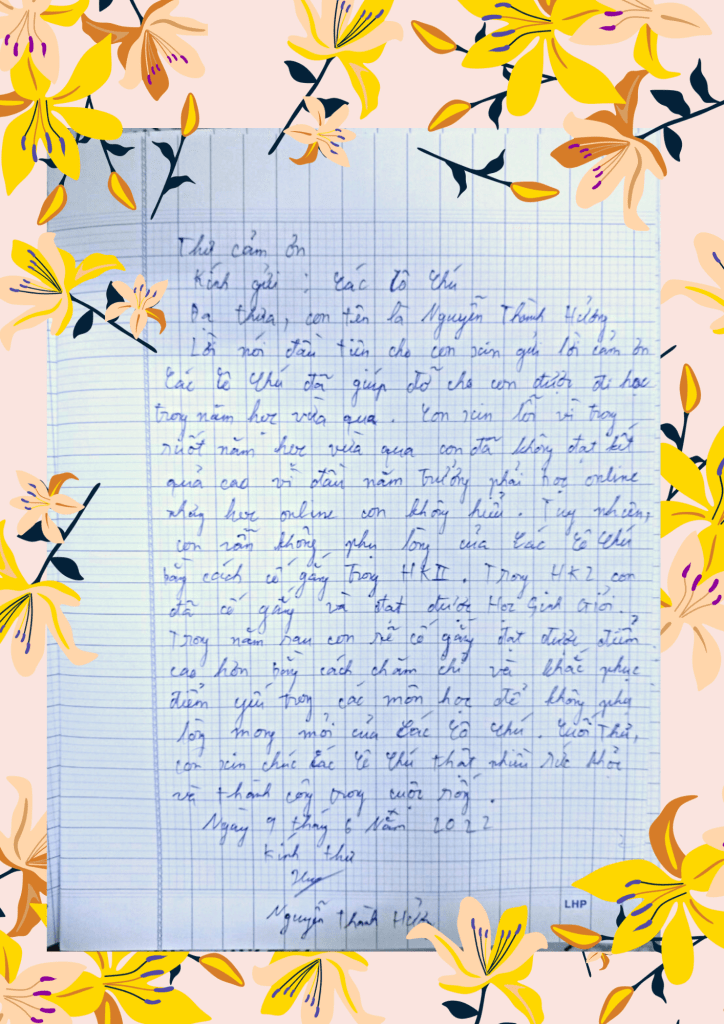 Thư cảm ơn
Kính gửi : Các Cô Chú
Dạ thưa, con tên là Nguyễn Thành Hưởng
Lời nói đầu tiên cho con xin gửi lời cảm ơn
Các Cô Chú đã giúp đỡ cho con được đi học
trong năm học vừa qua. Con xin lỗi vì trong
suốt năm học vừa qua con đã không đạt kết
quả cao vì đầu năm trường phải học online
nhưng học online con không hiểu. Tuy nhiên,
con vẫn không phụ lòng của Các Cô Chú
bằng cách cố gắng trong HKII. Trong HK2 con
đã cố gắng và đạt được Học Sinh Giỏi.
Trong năm sau con sẽ cố gắng đạt được điểm
cao hơn bằng cách chăm chỉ và khắc phục
điểm yếu trong các môn học để không phụ
lòng mong mỏi của Các Cô Chú. Cuối Thư,
con xin chúc Các Cô Chú thật nhiều sức khỏe
và thành công trong cuộc sống.
Ngày 9 tháng 6 Năm 2022
Kính thư
Nguyễn Thành
LHP